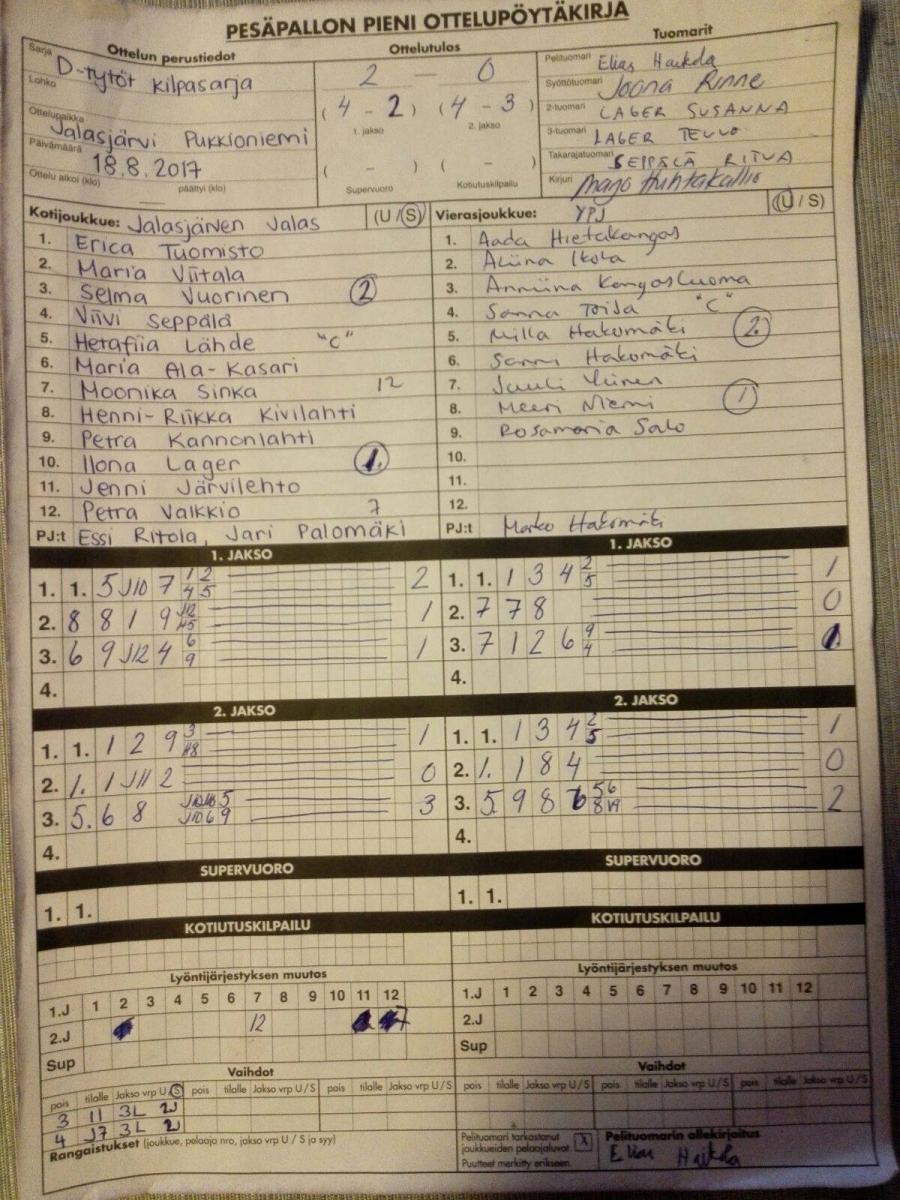 PESÄPALLON PIENI OTTELUPÖYTÄKIRJA
Ottelun perustiedot
Sarja
D-tytöt kilpasarja
Lohko
Ottelupaikka
Jalasjärvi Pukkioniemi
Päivämäärä
18.8.2017
Ottelu alkoi (klo) päättyi (klo)
Ottelutulos
2 - 0
(4 - 2) (4 - 3)
1. jakso 2. jakso
( - ) ( - )
Supervuoro Kotiutuskilpailu
Tuomarit
Pelituomari Elias Haikola
Syöttötuomari Joona Rinne
2-tuomari LAGER SUSANNA
3-tuomari LAGER TEUVO
Takarajatuomari SEPPÄLÄ RITVA
Kirjuri Marjo Huhtakallio
Kotijoukkue: Jalasjärven Jalas (U / S)
1. Erica Tuomisto
2. Maria Viitala
3. Selma Vuorinen 2
4. Viivi Seppälä
5. Hetafiia Lähde "C"
6. Maria Ala-Kasari
7. Moonika Sinka 12
8. Henni-Riikka Kivilahti
9. Petra Kannonlahti
10. Ilona Lager 1.
11. Jenni Järvilehto
12. Petra Valkkio 7
PJ:t Essi Ritola, Jari Palomäki
Vierasjoukkue: YPJ (U / S)
1. Aada Hietakangas
2. Aliina Ikola
3. Anniina Kangasluoma
4. Sanna Toija "C"
5. Milla Hakomäki 2.
6. Sanni Hakomäki
7. Juuli
8. Meeri Niemi 1
9. Rosamaria Salo
10.
11.
12.
PJ:t Marko Hakomäki
1. JAKSO
1. 1. 5 J10 7 1 2 4 5 2
2. 8 8 1 9 J12 1
3. 6 9 J12 4 6 9 1
4.
1. JAKSO
1. 1. 1 3 4 2 5 1
2. 7 7 8 0
3. 7 1 2 6 9 4 1
4.
2. JAKSO
1. 1. 1 2 9 3 1
2. 1. 1 J11 2 0
3. 5. 6 8 3
4.
2. JAKSO
1. 1. 1 3 4 2 5 1
2. 1. 1 8 4 0
3. 5. 9 8 6 5 6 2
4.
SUPERVUORO
1. 1.
SUPERVUORO
1. 1.
KOTIUTUSKILPAILU
KOTIUTUSKILPAILU
Lyöntijärjestyksen muutos
1.J 1 2 3 4 5 6 7 8 9 10 11 12
2.J 12 7
Sup
Lyöntijärjestyksen muutos
1.J 1 2 3 4 5 6 7 8 9 10 11 12
2.J
Sup
Vaihdot
pois tilalle Jakso vrp U/S pois tilalle Jakso vrp U/S pois tilalle Jakso vrp U/S
3 11 3L 2J
4 J7 3L 2J
Vaihdot
pois tilalle Jakso vrp U/S pois tilalle Jakso vrp U/S pois tilalle Jakso vrp U/S
Rangaistukset (joukkue, pelaaja nro, jakso vrp U / S ja syy)
Pelituomari tarkastanut
joukkueiden pelaajaluvat X
Puutteet merkitty erikseen
Pelituomarin allekirjoitus
Elias Haikola